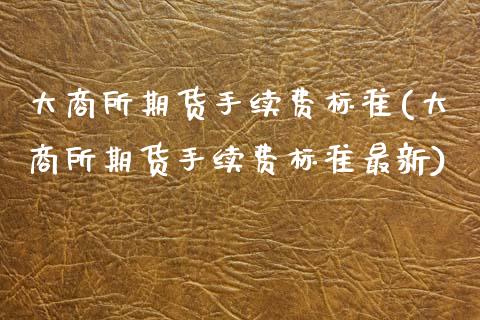 大商所期货手续费标准(大
商所期货手续费标准最新)